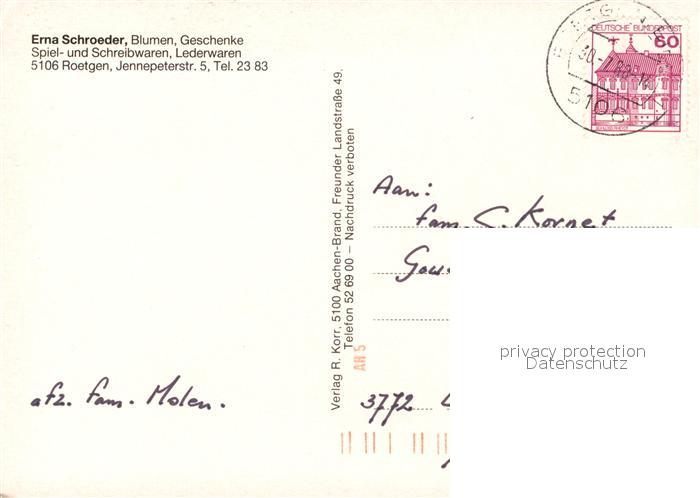 Erna Schroeder, Blumen, Geschenke
Spiel- und Schreibwaren, Lederwaren
5106 Roetgen, Jennepeterstr. 5, Tel. 23 83
Verlag R. Korr, 5100 Aachen-Brand, Freunder Landstraße 49.
Telefon 52 69 00 – Nachdruck verboten
DEUTSCHE BUNDESPOST
60
5106
Aan:
fam. C. Kornet
3772
afz. fam. Molen.
AR 5
privacy protection
Datenschutz